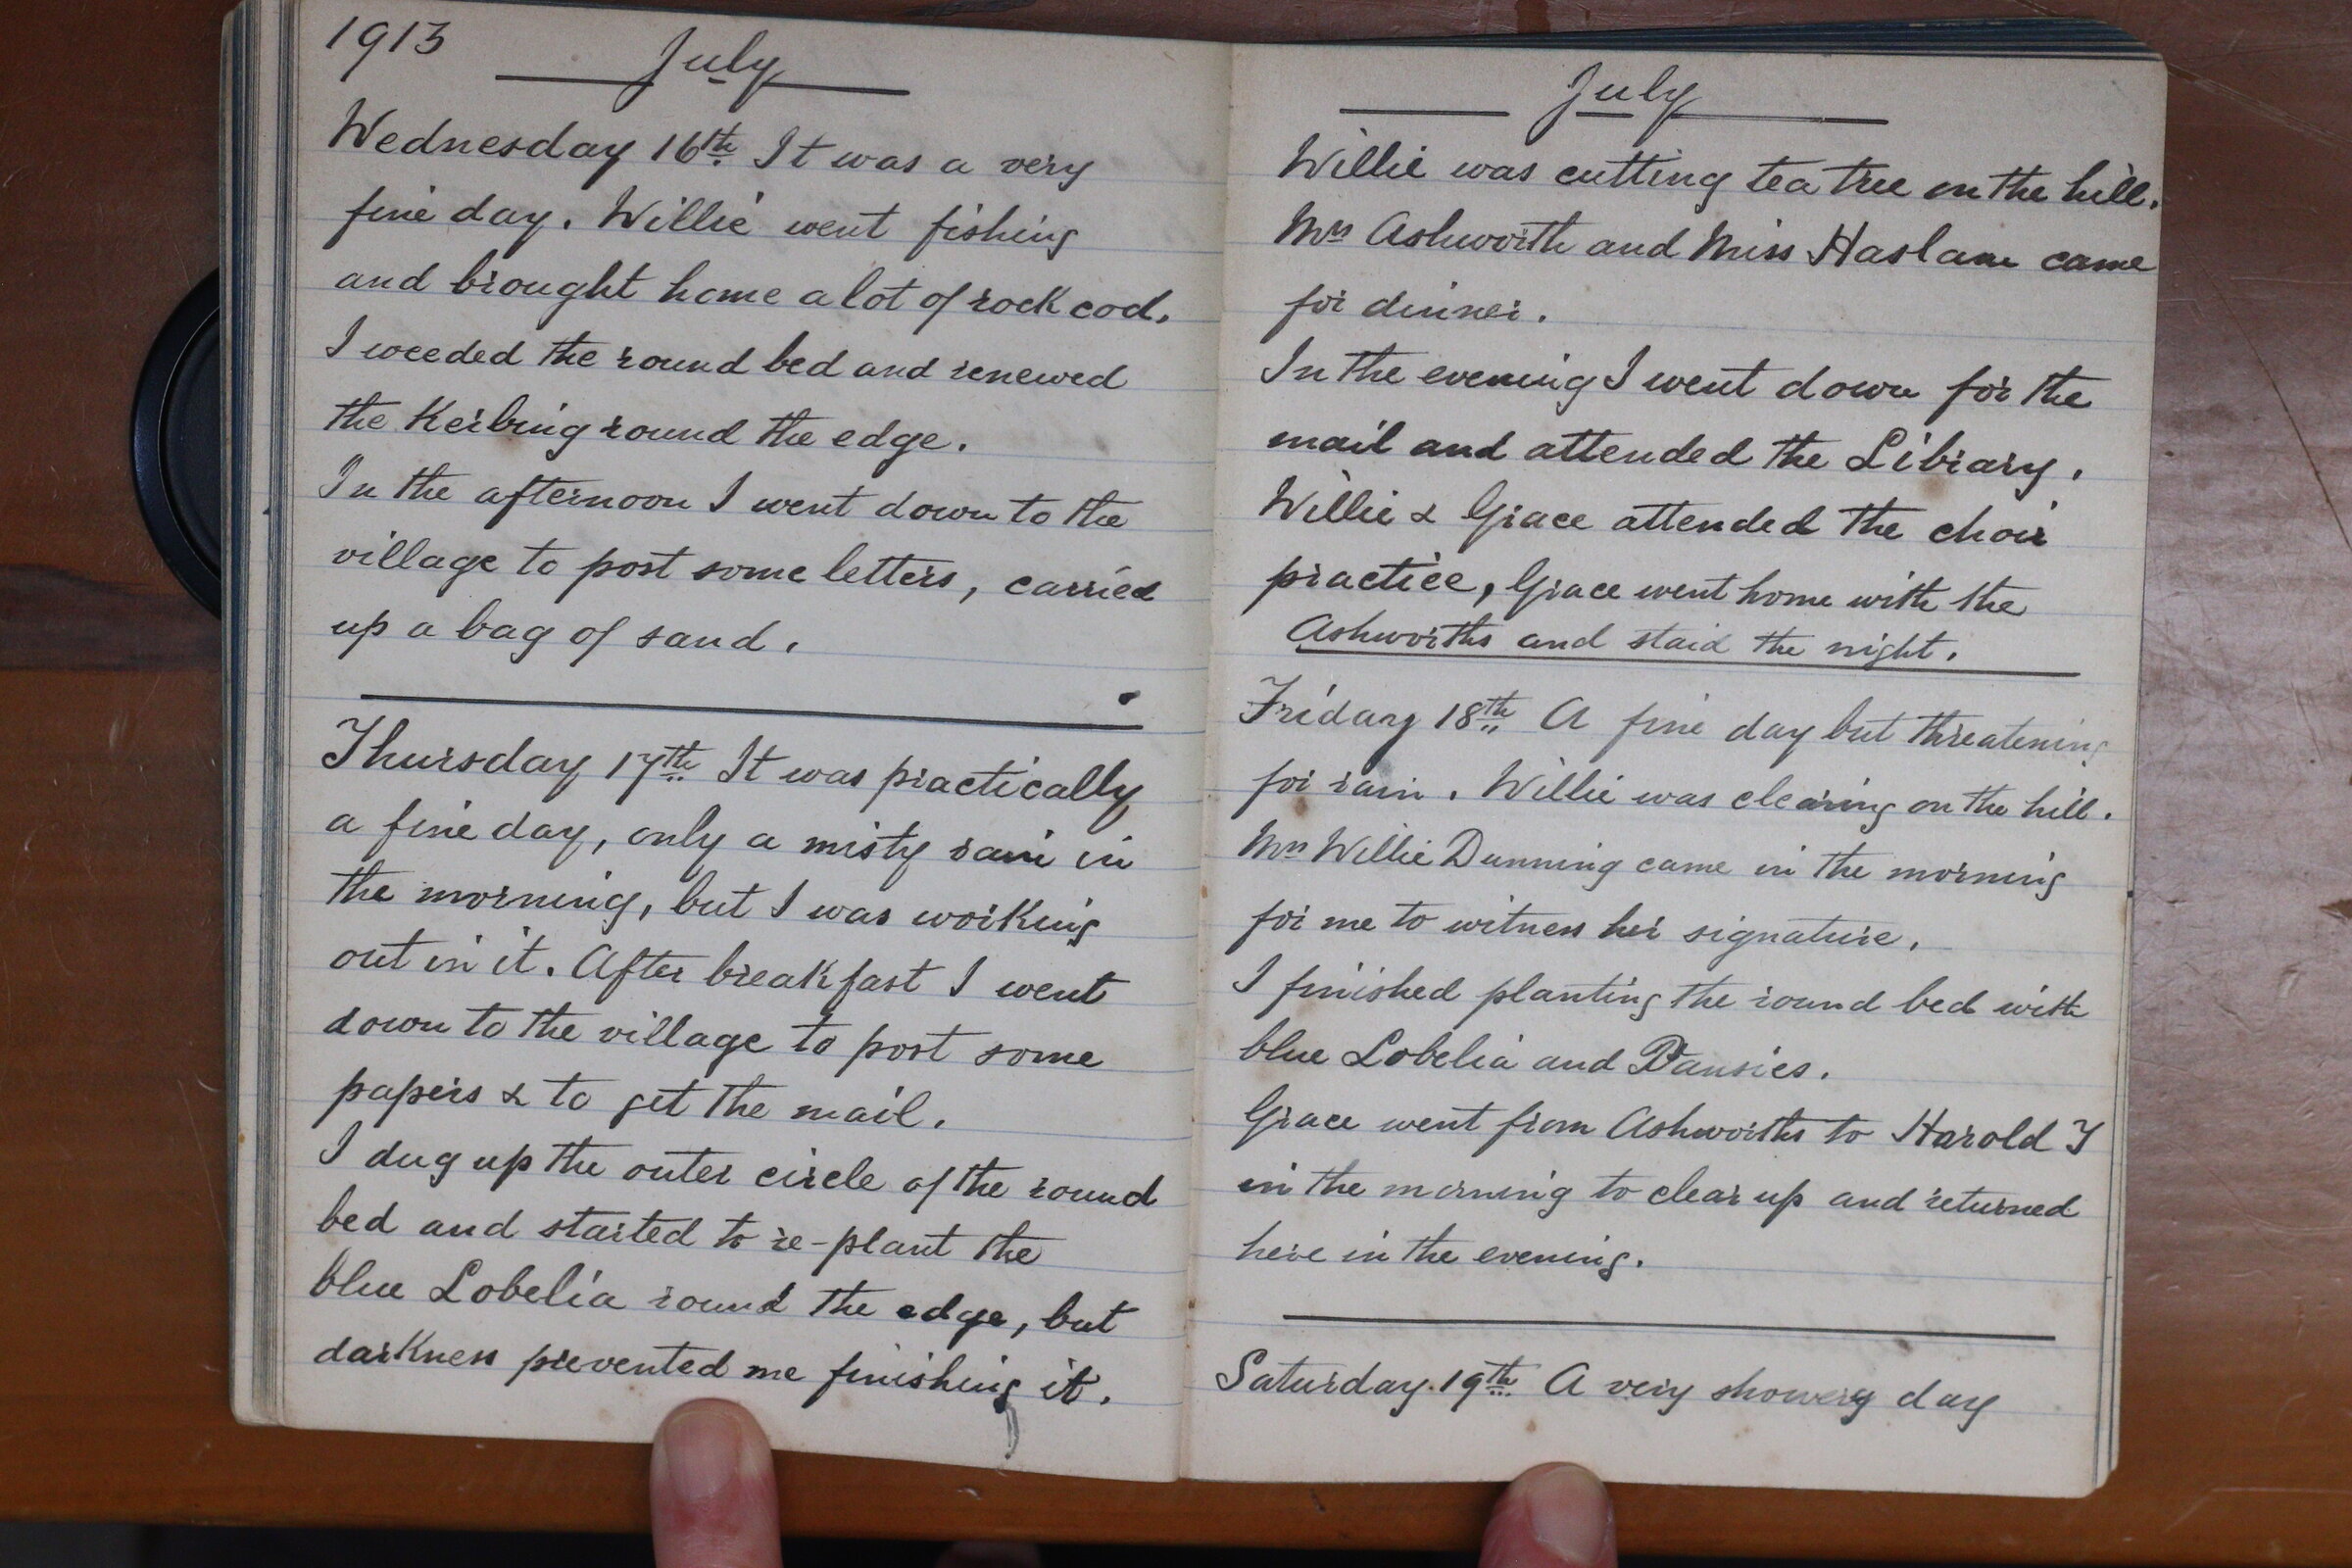 1913
July
Wednesday 16th. It was a very
fine day. Willie went fishing
and brought home a lot of rock cod.
I weeded the round bed and renewed
the Kerbing round the edge.
In the afternoon I went down to the
village to post some letters, carried
up a bag of sand.
Thursday 17th. It was practically
a fine day, only a misty rain in
the morning, but I was working
out in it. After breakfast I went
down to the village to post some
papers & to get the mail.
I dug up the outer circle of the round
bed and started to re-plant the
blue Lobelia round the edge, but
darkness prevented me finishing it.
July
Willie was cutting tea tree on the hill.
Mrs Ashworth and Miss Haslam came
for dinner.
In the evening I went down for the
mail and attended the Library.
Willie & Grace attended the choir
practice, Grace went home with the
Ashworths and staid the night.
Friday 18th. A fine day but threatening
for rain. Willie was clearing on the hill.
Mrs Willie Dunning came in the morning
for me to witness her signature.
I finished planting the round bed with
blue Lobelia and Pansies.
Grace went from Ashworths to Harold
in the morning to clear up and returned
here in the evening.
Saturday. 19th. A very showery day